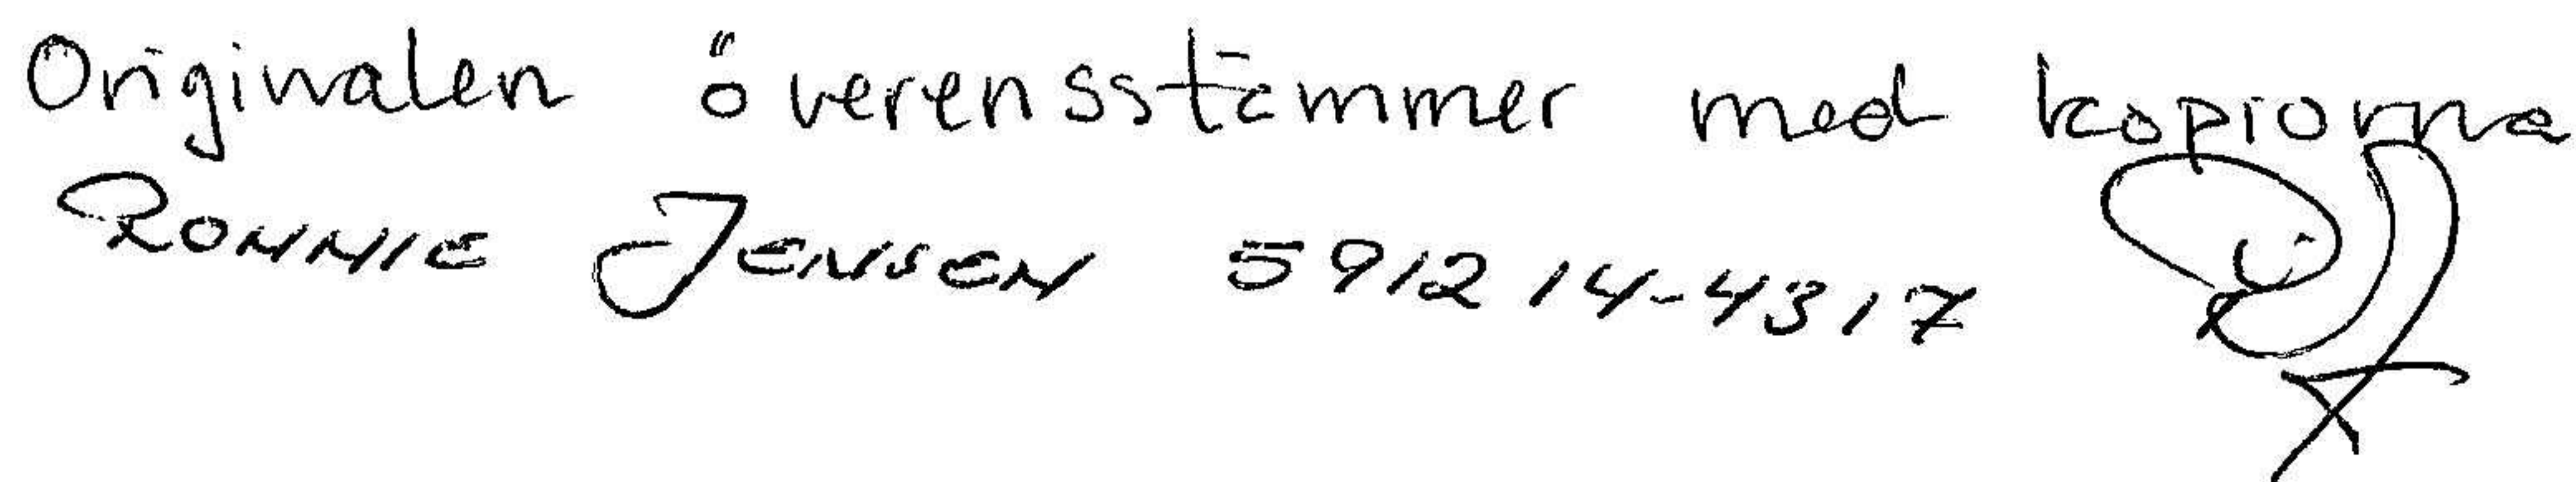 Originalen överensstämmer med kopiorna
RONNIE JENSEN 591214-4317